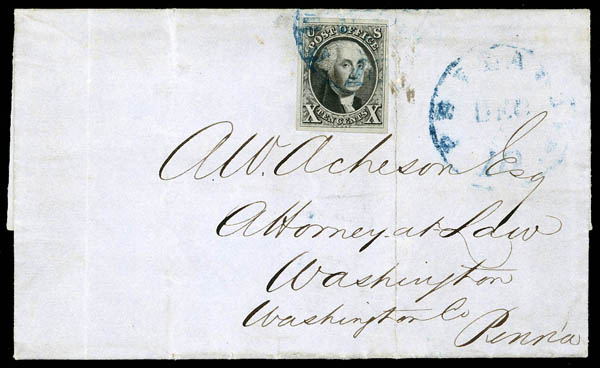 U S
POST OFFICE
X TEN CENTS X
DEC
A.W. Acheson Esq
Attorney at Law
Washington
Washington Co
Penn'a